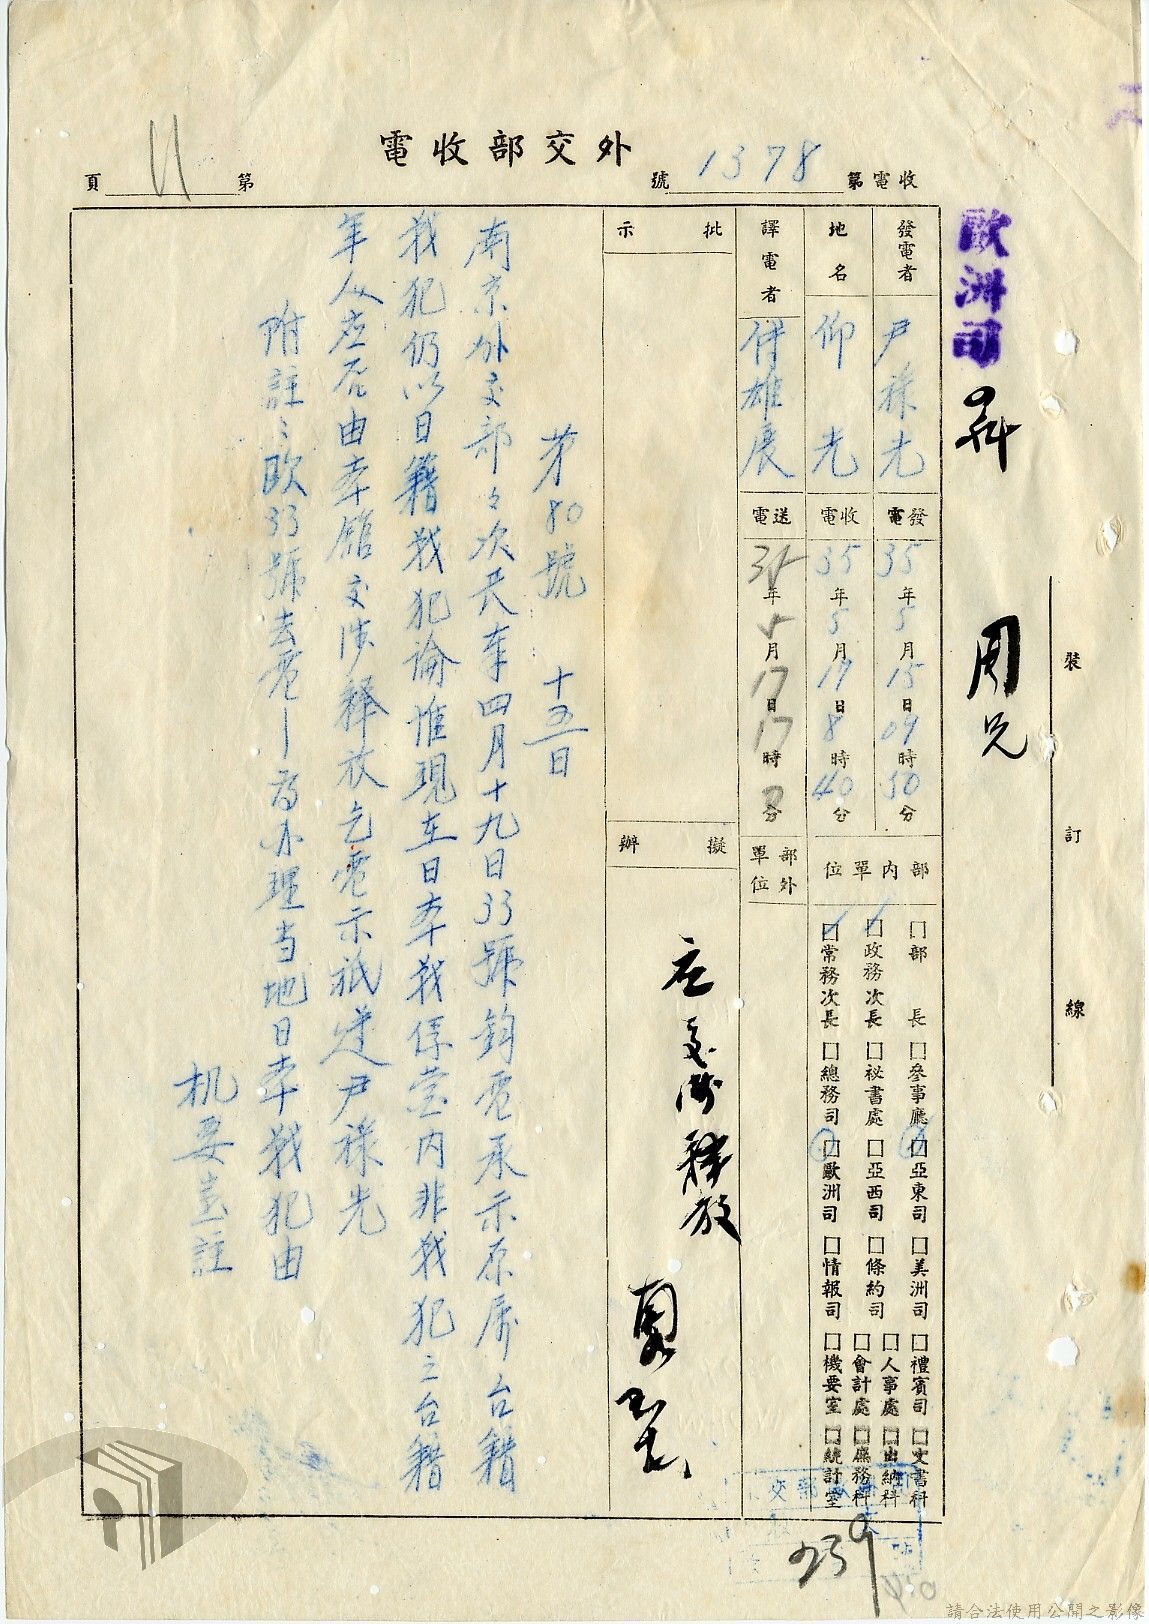 外交部收電
收電第1378號
第11頁
歐洲司
周兄
裝訂線
發電者 尹祿光
地名 仰光
譯電者 傅雄展
發電 35年5月15日09時50分
收電 35年5月17日8時40分
送電 35年5月17日17時 分
部內單位
□部長 □參事廳 □亞東司 □美洲司 □禮賓司 □文書科
□政務次長 □祕書處 □亞西司 □條約司 □人事處 □出納科
□常務次長 □總務司 □歐洲司 □情報司 □會計處 □庶務科
□機要室 □統計室
部外單位
批示
擬辦
應交涉釋放
第80號 十五日
南京外交部部次長奉四月十九日33號鈞電承示原屬台籍
戰犯仍以日籍戰犯論惟現在日本戰俘營內非戰犯之台籍
軍人應否由本館交涉釋放乞電示祇遵尹祿光
附註:歐33號去電—為办理当地日本戰犯由
机要室註
239
請合法使用公開之影像